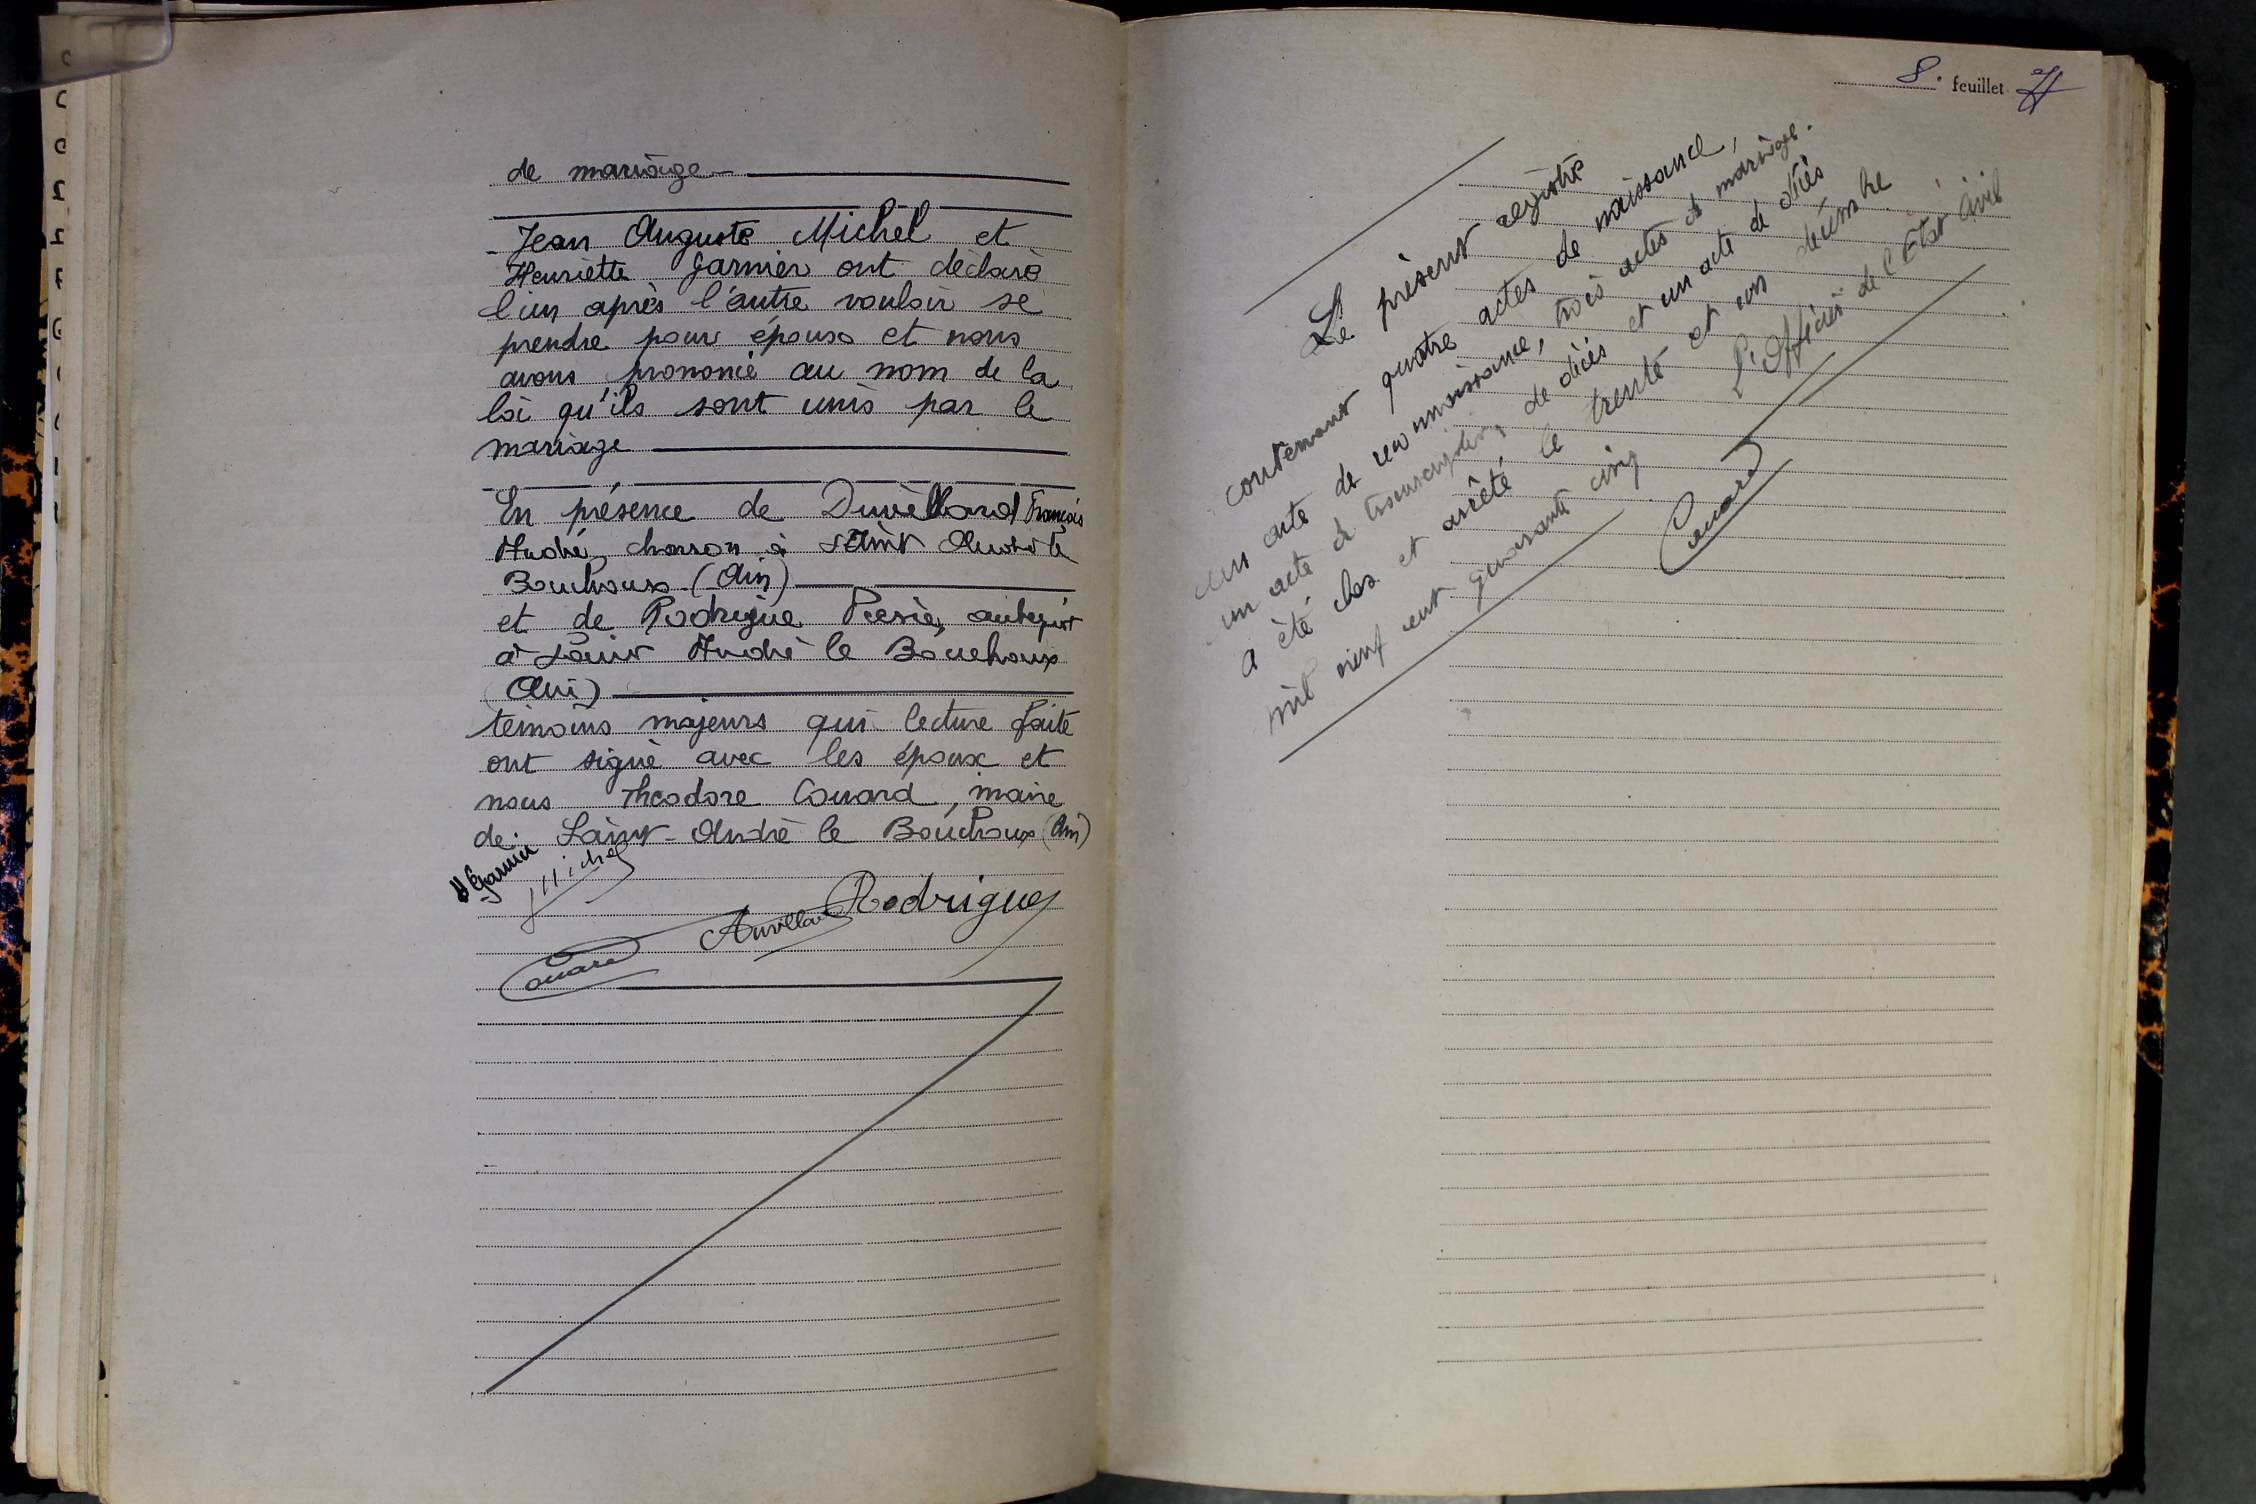 de mariage
Jean Auguste Michel et
Henriette Garnier ont déclaré
l'un après l'autre vouloir se
prendre pour époux et nous
avons prononcé au nom de la
loi qu'ils sont unis par le
mariage
En présence de Duvillard François
André, charron à Saint André le
Bouchoux (Ain)
et de Rodrigue
à Saint André le Bouchoux
(Ain)
témoins majeurs qui lecture faite
ont signé avec les époux et
nous Théodore Couard, maire
de Saint-André le Bouchoux (Ain)
H Garnier
J Michel
Rodrigue
Duvillard
Couard
8e feuillet
Le présent registre
contenant quatre actes de naissance,
un acte de reconnaissance, trois actes de mariage.
un acte de transcription de décès et un acte de décès
a été clos et arrêté le trente et un décembre
mil neuf cent quarante cinq
L'Officier de l'Etat Civil
Couard